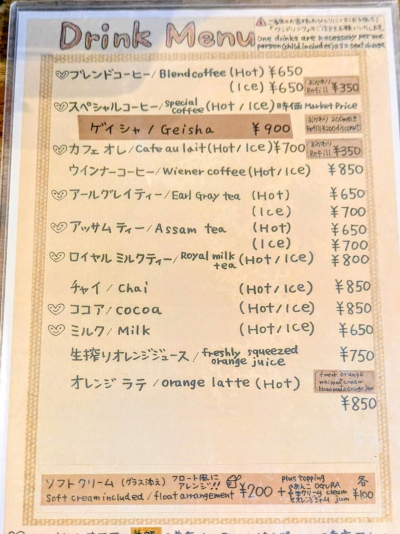 Drink Menu
one drinks are necessary per one
person (child includes) as a seat charge
ブレンドコーヒー/Blend coffee (Hot) ¥650
(Ice) ¥650
おかわり Refill ¥350
スペシャルコーヒー/special coffee (Hot/Ice) 時価 Market Price
ゲイシャ/Geisha ¥900
おかわり
カフェオレ/Cafe au lait (Hot/Ice) ¥700
おかわり Refill ¥350
ウインナーコーヒー/Wiener coffee (Hot/Ice) ¥850
アールグレイティー/Earl Gray tea (Hot) ¥650
(Ice) ¥700
アッサムティー/Assam tea (Hot) ¥650
(Ice) ¥700
ロイヤルミルクティー/Royal milk tea (Hot/Ice) ¥800
チャイ/Chai (Hot/Ice) ¥850
ココア/cocoa (Hot/Ice) ¥850
ミルク/Milk (Hot/Ice) ¥650
生搾りオレンジジュース/freshly squeezed orange juice ¥750
オレンジラテ/orange latte (Hot)
¥850
ソフトクリーム (グラス添え) フロート風に アレンジ!!
soft cream included/float arrangement ¥200
plus topping
+ あんこ OGURA
生クリーム cleam
オレンジジャム jam
各 ¥100